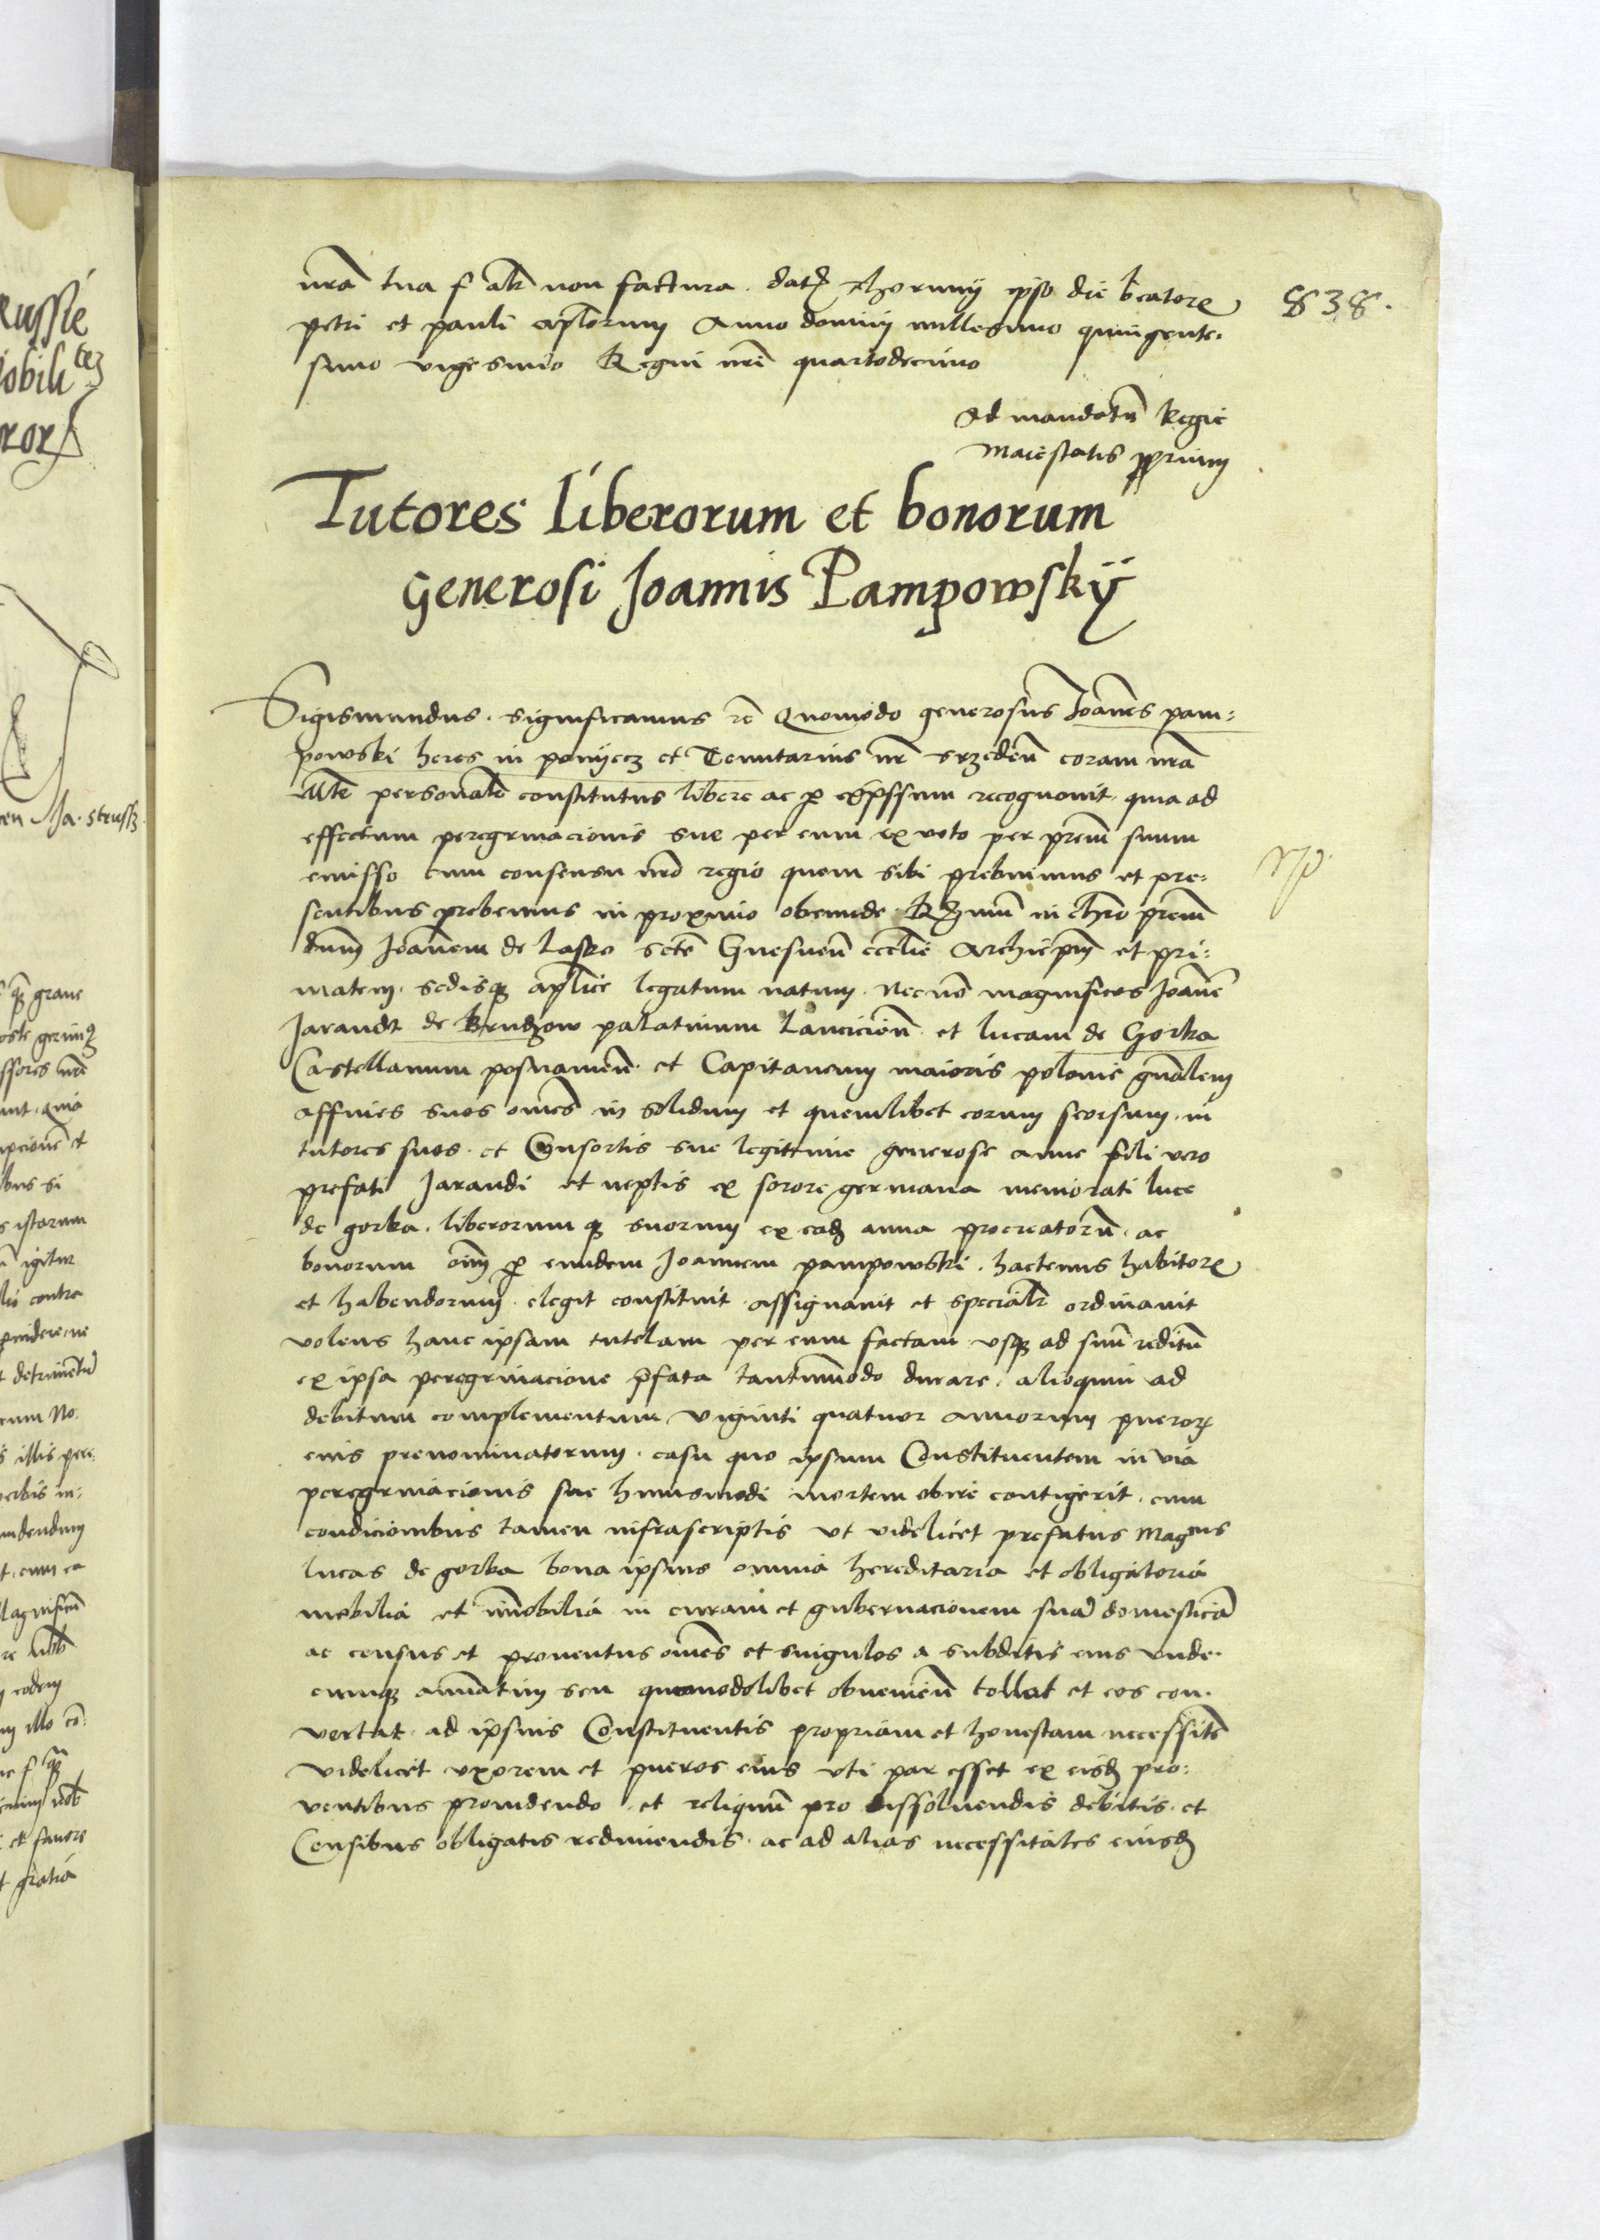 nrã tua f alr non factura. dat thorunij ipso die beatorꝝ
838.
petri et pauli aplorum Anno domini millesimo quingente-
simo vigesimo Regni nri quartodecimo
Ad mandatũ Regie
Maiestatis pprium
Tutores liberorum et bonorum
Generosi Joannis Pampowskij
Sigismundus. significamus rc̃ Quomodo generosus Joañes pam-
powski heres in ponijecz et Tenutarius nr̃ srzedeñ coram nrã
Mte personalr constitutus libere ac p expssum recognouit. quia ad
effectum peregrinacionis sue per eum ex voto per prem̃ suum
emisso cum consensu nrõ regio quem sibi prebuimus et pre-
sentibus prebemus in proximo obeunde. Rz̃mum in chro prem̃
dnm̃ Joañem de Lasko scte Gnesneñ ecclie Archiepm̃ et pri-
matem. sedisqꝫ aplice legatum natum. Nec nõ magnificos Joañe
Jarandt de Brudzow palatinum Lanciciens̃. et lucam de Gorka
Castellanum posnanieñ. et Capitaneum maioris polonie gnãlem
affines suos omẽs in solidum et quemlibet eorum seorsum. in
tutores suos. et Consortis sue legittime generose anne filie vero
prefati Jarandi et neptis ex sorore germana memorati luce
de gorka. liberorum qꝫ suorum ex eadẽ anna procreatorũ. ac
bonorum oim̃ p eundem Joannem pampowski. hactenus habitorꝝ
et habendorum. elegit constituit. assignauit et specialr ordinauit
volens hanc ipsam tutelam per eum factam vsqꝫ ad suũ reditũ
ex ipsa peregrinacione p̃fata tantumodo durare. alioquin ad
debitum complementum viginti quatuor annorum puerorꝝ
eius prenominatorum. casu quo ipsum Constituentem in via
peregrinacionis sue huiusmodi mortem obire contigerit. cum
condicionibus tamen infrascriptis vt videlicet prefatus Magcus
lucas de gorka bona ipsius omnia hereditaria et obligatoria
mobilia et im̃obilia in curam et gubernacionem suã domesticã
ac census et prouentus omẽs et singulos a subditis eius vnde-
cunqꝫ annatim seu quomodolibet obueniеñ tollat et eos con-
vertat. ad ipsius Constituentis propriam et honestam necessitẽ
videlicet vxorem et pueros eius vti par esset ex eisdẽ pro-
ventibus prouidendo. et reliquũ pro dissoluendis debitis. et
Censibus obligatis redimendis. ac ad alias necessitates eiusdẽ